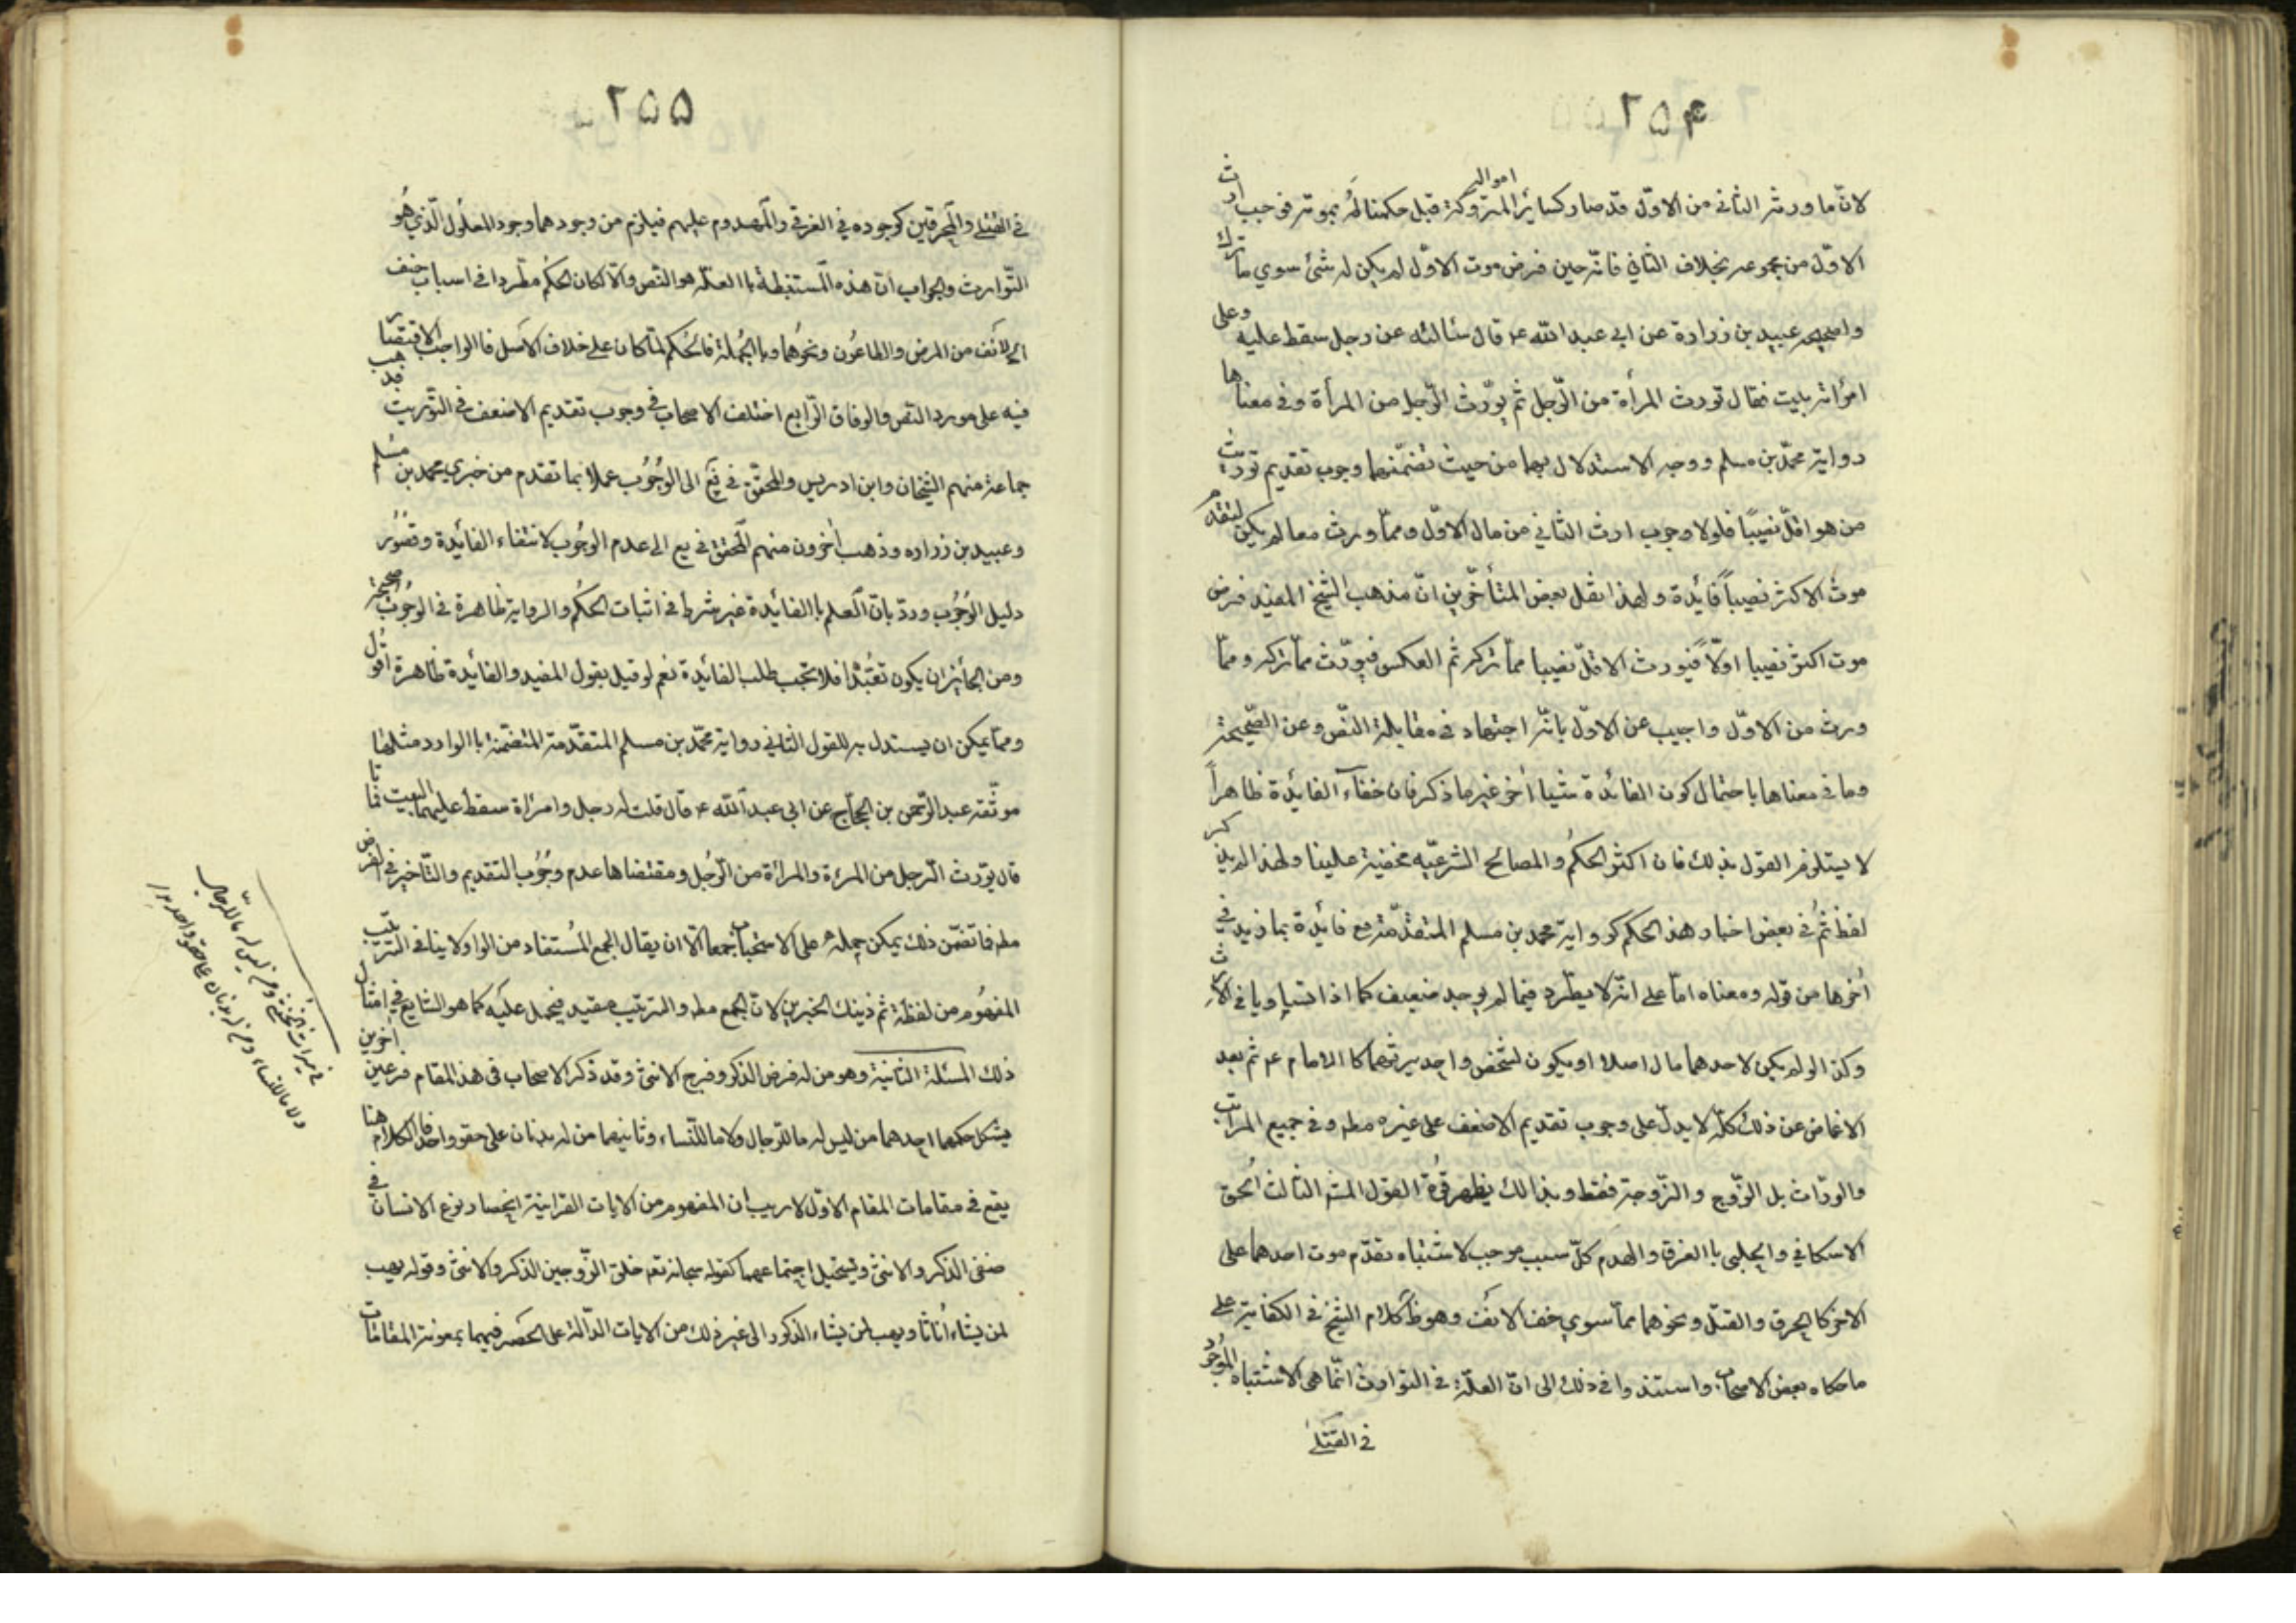 ٢٥۴
لانّ ما ورثه الثانى من الاوّل قد صار كسائر امواله المتروكة قبل حكمنا له بموته فوجب ارث
الاوّل من مجموعه بخلاف الثاني فانّه حين فرض موت الاوّل لم يكن له شئ سوي ما ترك
وا صحيحه عبيد بن زرارة عن ابي عبد الله ع قال سئالته عن رجل سقط عليه وعلى
امرأته بيت فقال تورث المرأة من الرّجل ثم يورّث الرّجل من المرأة وفي معناها
رواية محمّد بن مسلم ووجه الاستدلال بهما من حيث تضمّنهما وجوب تقديم توريث
من هو اقلّ نصيبًا فلولا وجوب ارث الثاني من مال الاوّل وممّا ورث معا لم يكن لتقديم
موت الاكثر نصيباً فائدة ولهذا نقل بعض المتأخّرين انّ مذهب الشيخ المفيد فرض
موت اكثر نصيبا اولاً فيورث الاقلّ نصيبا ممّا تركه ثم العكس فيورّث ممّا تركه وممّا
ورث من الاوّل واجيب عن الاوّل بانّه اجتهاد في مقابلة النّص وعن الصّحيحة
وما في معناها باحتمال كون الفائدة شيئا اٰخر غير ما ذكر فان خفاء الفائدة ظاهراً
لا يستلزم القول بذلك فان اكثر الحكم والمصالح الشرعيّه مخفيّة علينا ولهذا لم يذكر
لفظ ثمّ في بعض اخبار هذا الحكم كرواية محمد بن مسلم المتقدّمة مع فائدة بما زيد في
اٰخرها من قوله ومعناه امّا على انّه لا يطّرد فيما لم يوجد ضعيف كما اذا تساويا في الارث
وكذا لو لم يكن لاحدهما مال اصلا او يكون لشخص واحد يرثهما كالامام ع ثم بعد
الاغماض عن ذلك كلّه لا يدلّ على وجوب تقديم الاضعف على غيره مطه وفي جميع المراتب
والورّاث بل الزّوج والزّوجة فقط وبذالك يظهر قوّة القول المشه الثالث اُلحق
الاسكافي والحلبي باالغرق والهدم كلّ سبب موجب لاشتباه تقدّم موت احدهما على
الاخر كالحرق والقتل ونحوهما ممّا سوي حتف الانف وهو ظّ كلام الشيخ في الكفاية على
ما حكاه بعض الاصحاب واستندوا في ذلك الى انّ العلّة في التوارث انّما هي الاشتباه الموجود
في القتلى
٢٥۵
في القتلى والمحرقين كوجوده في الغرقى والمهدوم عليهم فيلزم من وجودهما وجود المعلول الّذي هو
التّوارث والجواب انّ هذه المستنبطة باالعلّة هو النّص والّا لكان الحكم مطّردا في اسباب حتف
الانف من المرض والطاعون ونحوهما وباالجملة فالحكم لمّا كان على خلاف الاصل فالواجب الاقتصار
فيه على مورد النّص والوفاق الرّابع اختلف الاصحاب في وجوب تقديم الاضعف في التوريث فذهب
جماعة منهم الشيخان وابن ادريس والمحقق في يع الى الوجُوب عملا بما تقدم من خبري محمد بن مسلم
وعبيد بن زراره وذهب اٰخرون منهم المحقق في يع الى عدم الوجُوب لانتفاء الفائدة وقصُور
دليل الوجُوب وردّ بانّ العلم باالفائدة غير شرط في اثبات الحكم والرواية ظاهرة في الوجوب صحيحة
ومن الجائز ان يكون تعبّدا فلا تجب طلب الفائدة نعم لو قيل بقول المفيد والفائدة ظاهرة اقول
وممّا يمكن ان يستدل به للقول الثاني رواية محمّد بن مسلم المتقدّمة المتضمّنة باالوارد مثلها
موثّقة عبد الرّحمن بن الحجّاج عن ابي عبد الله ع قال قلت له رجل وامرأة سقط عليهما البيت فماتا
قال يورّث الرجل من المرءة والمرأة من الرّجل ومقتضاها عدم وجُوب التقديم والتأخير في الفرض
مطه فما تضمّن ذلك يمكن حمله على الاستحباب جمعا الّا ان يقال الجمع المُستفاد من الواو لا ينافى الترتيب
المفهُوم من لفظة ثم ذينك الخبرين لانّ الجمع مطه والترتيب مقيد فيحمل عليه كما هو الشايع في امثال
ذلك المسئلة الثانية وهو من له فرض الذكر وفرج الانثى وقد ذكر الاصحاب في هذا المقام فرعين اٰخرين
يشكل حكمهما احدهما من ليس له ما للرّجال ولا ما للنّساء وثانيهما من له بدنان على حقو واحد فالكلام هنا
يقع في مقامات المقام الاوّل لا ريب ان المفهوم من الايات القرانية انحصار نوع الانسان في
صنفى الذكر والانثى ويستحيل اجتماعهما كقوله سبحانه تعم خلق الزّوجين الذكر والانثى وقوله يهب
لمن يشاء اُناثا ويهب لمن يشاء الذكور الى غير ذلك من الايات الدالّة على الحصر فيهما بمعونة المقامات
في ميراث الخنثى ومن ليس له ما للرجال
ولا ما للنساء ومن له بدنان على حقو واحد